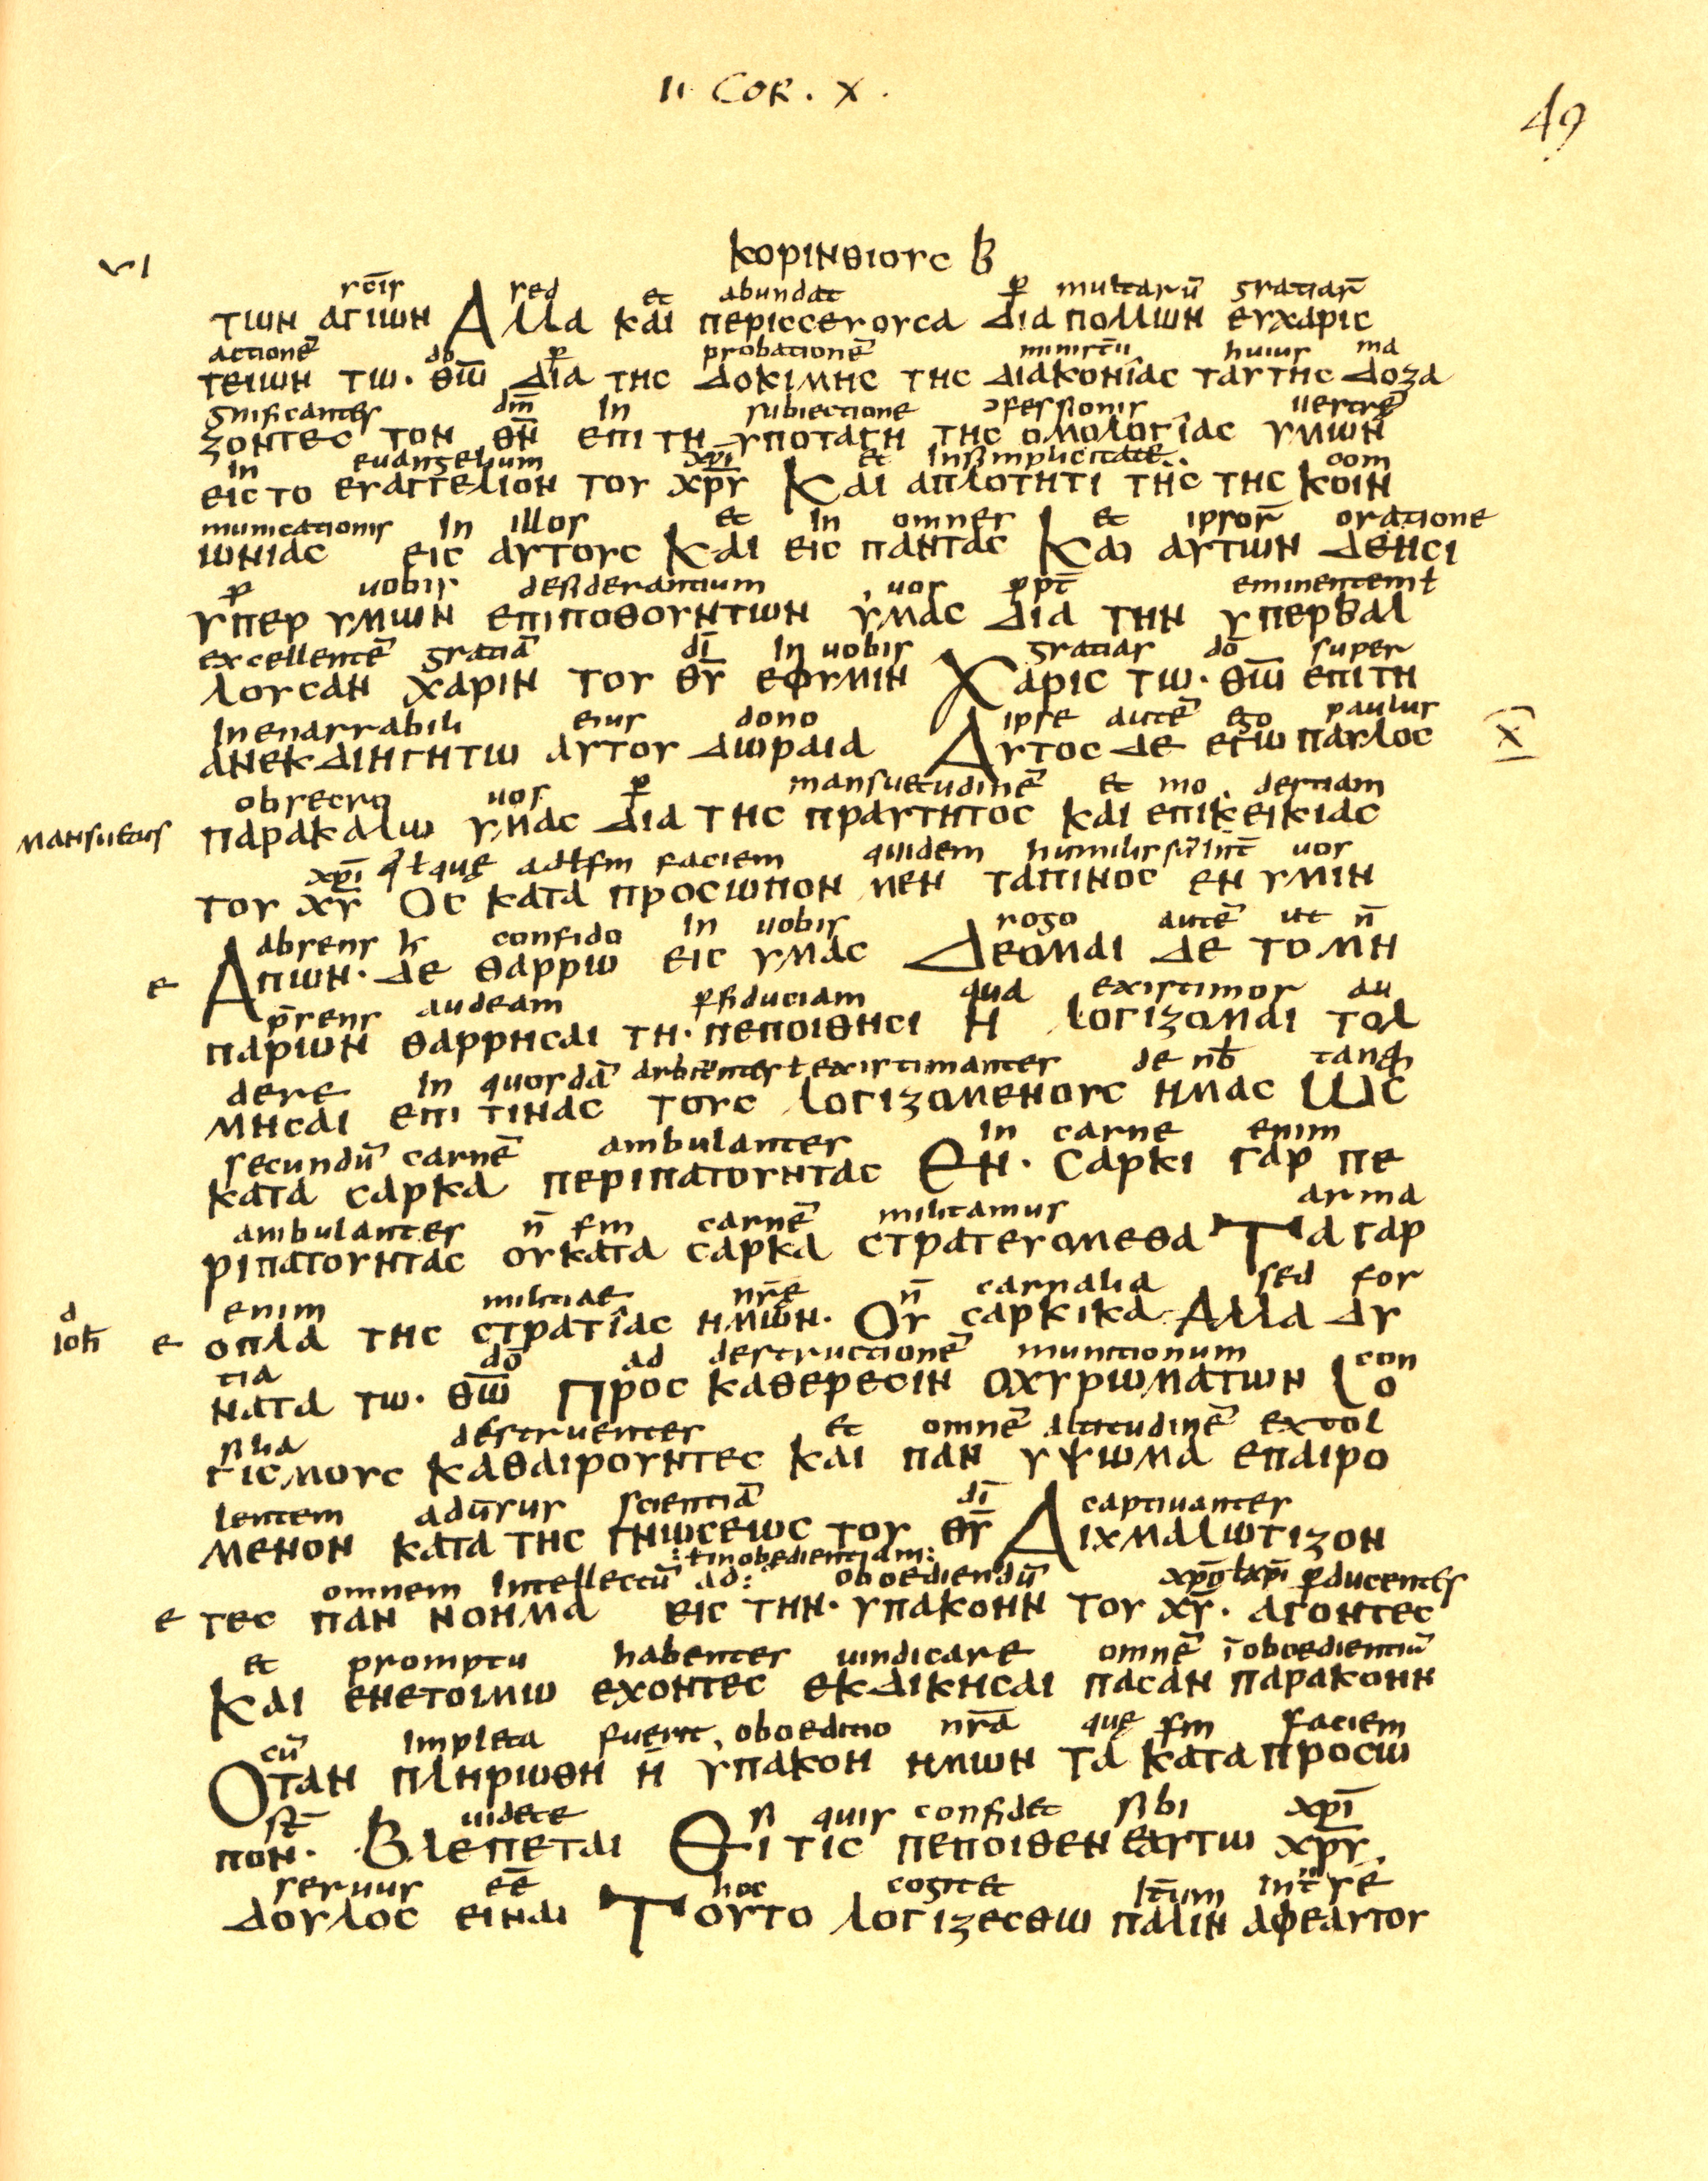 II COR. X.
49
VI
κορινθιουϲ β
scīs sed et abundat ꝑ multarū gratiaꝝ
των αγιων Αλλα και περιϲϲευουϲα δια πολλων ευχαριϲ
actionē dō ꝑ probationē ministīī huius ma
τειων τω· θ̅ω̅ δια τηϲ δοκιμηϲ τηϲ διακονιαϲ ταυτηϲ δοξα
gnificantes dm̄ In subiectione ɔfessionis uestrę
ζοντεϲ τον θ̅ν̅ επι τη υποταγη τηϲ ομολογιαϲ υμων
In euangelium xp̄i et In simplicitate com
ειϲ το ευαγγελιον του χ̅ρ̅υ̅ Και απλοτητι τηϲ τηϲ κοιν
municationis In illos et In omnes et ipsoꝝ oratione
ωνιαϲ ειϲ αυτουϲ Και ειϲ πανταϲ Και αυτων δεηϲι
ꝓ uobis desiderantium uos ꝓpt̄ eminentem ł
υπερ υμων επιποθουντων υμαϲ δια την υπερβαλ
excellentē gratiā dī In uobis gratias dō super
λουϲαν χαριν του θ̅υ̅ εφυμιν Χαριϲ τω· θ̅ω̅ επι τη
Inenarrabili eius dono ipse autē ego paulus
ανεκδιηγητω αυτου δωραια Αυτοϲ δε εγω παυλοϲ X
obsecro uos ꝑ mansuetudinē et mo destiam
mansuetus παρακαλω υμαϲ δια τηϲ πραυτητοϲ και επικεικιαϲ
xp̄i q̄ ł quę faciem quidem humilis uos
του χ̅υ̅ Οϲ κατα προϲωπον μεν ταπινοϲ εν υμιν
absens confido In uobis rogo autē ut n̄
e Απων· δε θαρρω ειϲ υμαϲ Δεομαι δε το μη
p̄sens audeam ꝑ fiduciam qua existimor au
παρων θαρρηϲαι τη· πεποιθηϲι η λογιζομαι τολ
dere In quosdā arbitrantes ł existimantes de nob̄ tanꝗ
μηϲαι επι τιναϲ τουϲ λογιζομενουϲ ημαϲ ωϲ
secundū carnē ambulantes In carne enim
κατα ϲαρκα περιπατουνταϲ Εν· ϲαρκι γαρ πε
ambulantes n̄ sm̄ carnē militamus arma
ριπατουνταϲ ουκατα ϲαρκα ϲτρατευομεθα Τα γαρ
d
enim militiae nr̄ę n̄ carnalia sed for
ioh̄ e οπλα τηϲ ϲτρατιαϲ ημων· Ου ϲαρκικα Αλλα δυ
tia dō ad destructionē munitionum con
νατα τω· θ̅ω̅ Προϲ καθερεϲιν οχυρωματων Λο
silia destruentes et omnē altitudinē extol
γιϲμουϲ καθαιρουντεϲ και παν υψωμα επαιρο
lentem adūsus scientiā dī captiuantes
μενον κατα τηϲ γνωϲεωϲ του θ̅υ̅ Αιχμαλωτιζον
: ł inobedientiam:
omnem Intellectū ad: oboediendū xp̄o ł xp̄i ꝑducentes
e τεϲ παν νοημα ειϲ την· υπακοην του χ̅υ̅· αγοντεϲ
et promptu habentes uindicare omnē īoboedientiā
Και ενετοιμω εχοντεϲ εκδικηϲαι παϲαν παρακοην
cū Impleta fuerit oboeditio nr̄a quę sm̄ faciem
Οταν πληρωθη η υπακοη ημων τα κατα προϲω
st̄ uidete si quis confidet sibi xp̄i
πον· Βλεπεται Ει τιϲ πεποιθεν εαυτω χ̅ρ̅υ̅
seruus eē hoc cogitet It̄um Int̄ se
δουλοϲ ειναι Τουτο λογιζεϲθω παλιν αφεαυτου